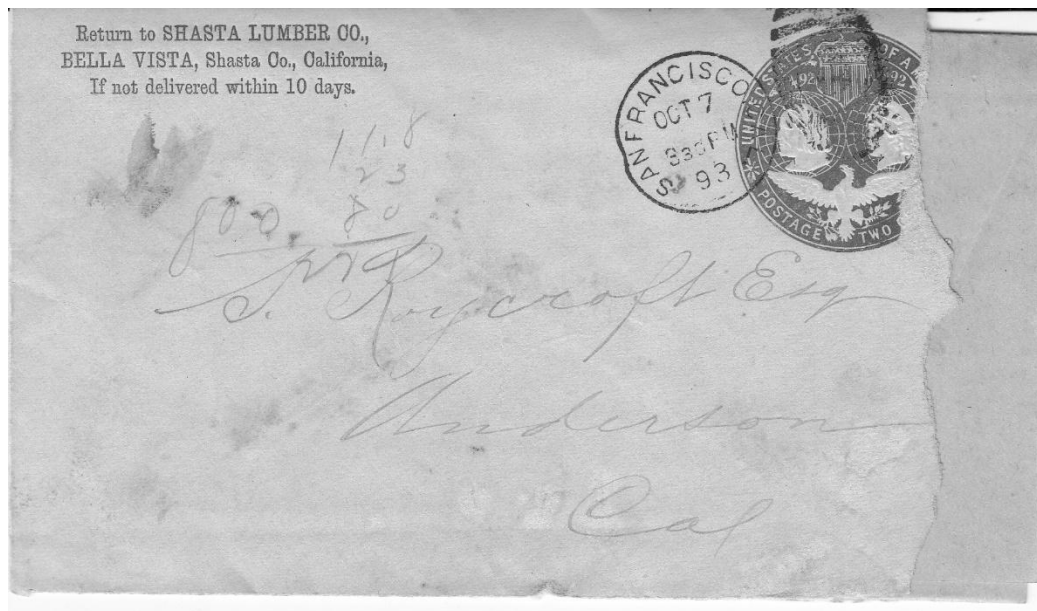 Return to SHASTA LUMBER CO.,
BELLA VISTA, Shasta Co., California,
If not delivered within 10 days.
SAN FRANCISCO
OCT 7
330 PM
93
UNITED STATES OF A
492 92
POSTAGE TWO
11.8
23
800 80
S. Roycroft Esq
Anderson
Cal